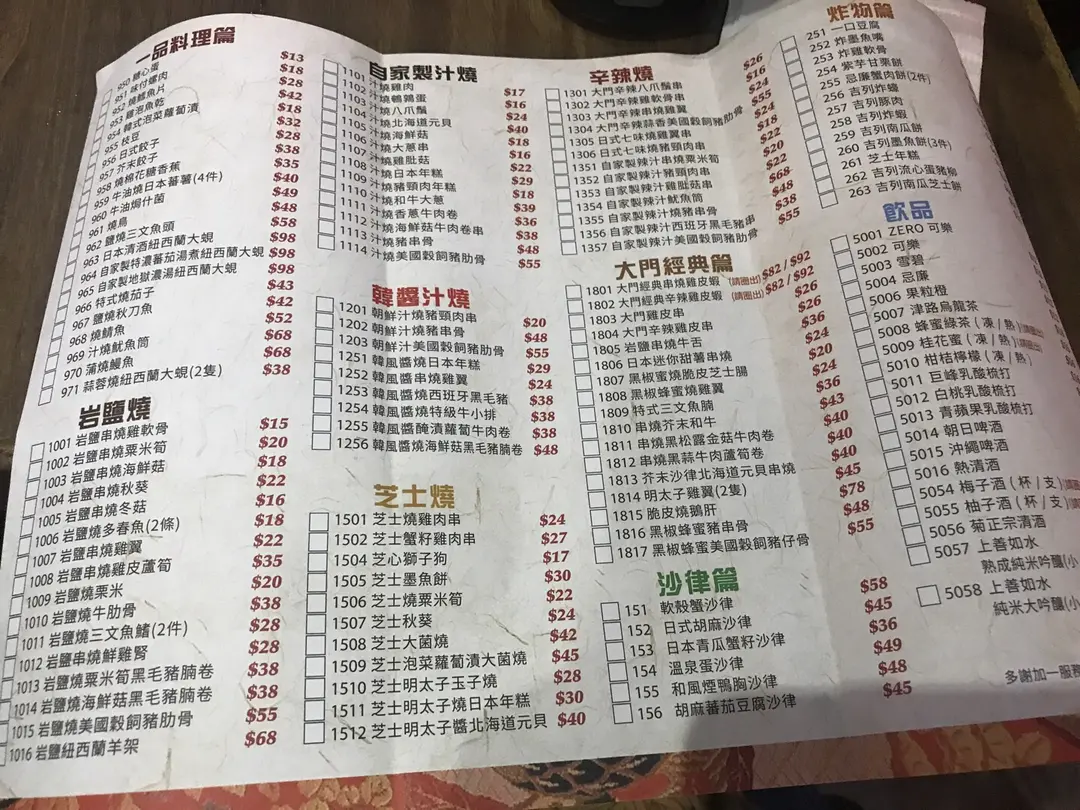 一品料理篇
950 糖心蛋 $13
951 味付螺肉 $18
952 燒鱈魚片 $28
953 雞泡魚乾 $42
954 韓式泡菜蘿蔔漬 $18
955 枝豆 $32
956 日式餃子 $28
957 芥末餃子 $38
958 燒棉花糖香蕉 $35
959 牛油燒日本蕃薯(4件) $40
960 牛油焗什菌 $49
961 燒鳥 $48
962 鹽燒三文魚頭 $58
963 日本清酒紐西蘭大蜆 $98
964 自家製特濃蕃茄湯煮紐西蘭大蜆 $98
965 自家製地獄濃湯紐西蘭大蜆 $98
966 特式燒茄子 $43
967 鹽燒秋刀魚 $42
968 燒鯖魚 $52
969 汁燒魷魚筒 $68
970 蒲燒鰻魚 $68
971 蒜蓉燒紐西蘭大蜆(2隻) $38
岩鹽燒
1001 岩鹽串燒雞軟骨 $15
1002 岩鹽串燒粟米筍 $20
1003 岩鹽串燒海鮮菇 $18
1004 岩鹽串燒秋葵 $22
1005 岩鹽串燒冬菇 $16
1006 岩鹽燒多春魚(2條) $18
1007 岩鹽串燒雞翼 $22
1008 岩鹽串燒雞皮蘆筍 $35
1009 岩鹽燒栗米 $20
1010 岩鹽燒牛肋骨 $38
1011 岩鹽燒三文魚鰭(2件) $28
1012 岩鹽串燒鮮雞腎 $28
1013 岩鹽燒粟米筍黑毛豬腩卷 $38
1014 岩鹽燒海鮮菇黑毛豬腩卷 $38
1015 岩鹽燒美國穀飼豬肋骨 $55
1016 岩鹽紐西蘭羊架 $68
自家製汁燒
1101 汁燒雞肉 $17
1102 汁燒鵪鶉蛋 $16
1103 汁燒八爪鬚 $24
1104 汁燒北海道元貝 $40
1105 汁燒海鮮菇 $18
1106 汁燒大蔥串 $16
1107 汁燒雞肶菇 $22
1108 汁燒日本年糕 $29
1109 汁燒豬頸肉年糕 $18
1110 汁燒和牛大蔥 $39
1111 汁燒香蔥牛肉卷 $36
1112 汁燒海鮮菇牛肉卷串 $38
1113 汁燒豬串骨 $48
1114 汁燒美國穀飼豬肋骨 $55
韓醬汁燒
1201 朝鮮汁燒豬頸肉串 $20
1202 朝鮮汁燒豬串骨 $48
1203 朝鮮汁美國穀飼豬肋骨 $55
1251 韓風醬燒日本年糕 $29
1252 韓風醬串燒雞翼 $24
1253 韓風醬燒西班牙黑毛豬 $38
1254 韓風醬燒特級牛小排 $38
1255 韓風醬醃漬蘿蔔牛肉卷 $38
1256 韓風醬燒海鮮菇黑毛豬腩卷 $48
芝士燒
1501 芝士燒雞肉串 $24
1502 芝士蟹籽雞肉串 $27
1504 芝心獅子狗 $17
1505 芝士墨魚餅 $30
1506 芝士燒粟米筍 $22
1507 芝士秋葵 $24
1508 芝士大菌燒 $42
1509 芝士泡菜蘿蔔漬大菌燒 $45
1510 芝士明太子玉子燒 $28
1511 芝士明太子燒日本年糕 $30
1512 芝士明太子醬北海道元貝 $40
辛辣燒
1301 大門辛辣八爪鬚串 $26
1302 大門辛辣雞軟骨串 $16
1303 大門辛辣串燒雞翼 $24
1304 大門辛辣蒜香美國穀飼豬肋骨 $55
1305 日式七味燒雞翼串 $24
1306 日式七味燒豬頸肉串 $18
1351 自家製辣汁串燒粟米筍 $22
1352 自家製辣汁豬頸肉串 $20
1353 自家製辣汁雞肶菇串 $22
1354 自家製辣汁魷魚筒 $68
1355 自家製辣汁燒豬串骨 $48
1356 自家製辣汁西班牙黑毛豬串 $38
1357 自家製辣汁美國穀飼豬肋骨 $55
大門經典篇
1801 大門經典串燒雞皮蝦 (請圈出) $82 / $92
1802 大門經典辛辣雞皮蝦 (請圈出) $82 / $92
1803 大門雞皮串 $26
1804 大門辛辣雞皮串 $26
1805 岩鹽串燒牛舌 $36
1806 日本迷你甜薯串燒 $24
1807 黑椒蜜燒脆皮芝士腸 $20
1808 黑椒蜂蜜燒雞翼 $24
1809 特式三文魚腩 $36
1810 串燒芥末和牛 $43
1811 串燒黑松露金菇牛肉卷 $40
1812 串燒黑蒜牛肉蘆筍卷 $40
1813 芥末沙律北海道元貝串燒 $40
1814 明太子雞翼(2隻) $45
1815 脆皮燒鵝肝 $78
1816 黑椒蜂蜜豬串骨 $48
1817 黑椒蜂蜜美國穀飼豬仔骨 $55
沙律篇
151 軟殼蟹沙律 $58
152 日式胡麻沙律 $45
153 日本青瓜蟹籽沙律 $36
154 溫泉蛋沙律 $49
155 和風煙鴨胸沙律 $48
156 胡麻蕃茄豆腐沙律 $45
炸物篇
251 一口豆腐
252 炸墨魚嘴
253 炸雞軟骨
254 紫芋甘栗餅
255 忌廉蟹肉餅(2件)
256 吉列炸蠔
257 吉列豚肉
258 吉列炸蝦
259 吉列南瓜餅
260 吉列墨魚餅(3件)
261 芝士年糕
262 吉列流心蛋豬柳
263 吉列南瓜芝士餅
飲品
5001 ZERO 可樂
5002 可樂
5003 雪碧
5004 忌廉
5006 果粒橙
5007 津路烏龍茶
5008 蜂蜜綠茶 (凍 / 熱)
5009 桂花蜜 (凍 / 熱)
5010 柑桔檸檬 (凍 / 熱)
5011 巨峰乳酸梳打
5012 白桃乳酸梳打
5013 青蘋果乳酸梳打
5014 朝日啤酒
5015 沖繩啤酒
5016 熱清酒
5054 梅子酒 (杯 / 支)
5055 柚子酒 (杯 / 支)
5056 菊正宗清酒
5057 上善如水
熟成純米吟釀(小
5058 上善如水
純米大吟釀(小
多謝加一服務